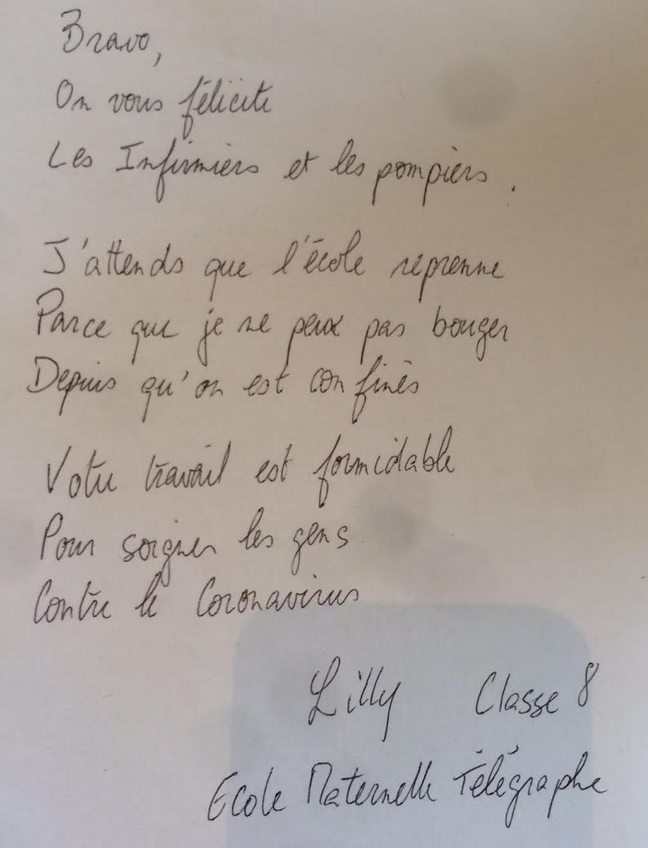 Bravo,
On vous félicite
Les Infirmiers et les pompiers.
J'attends que l'école reprenne
Parce que je ne peux pas bouger
Depuis qu'on est confinés
Votre travail est formidable
Pour soigner les gens
Contre le Coronavirus
Lilly Classe 8
Ecole Maternelle Télégraphe